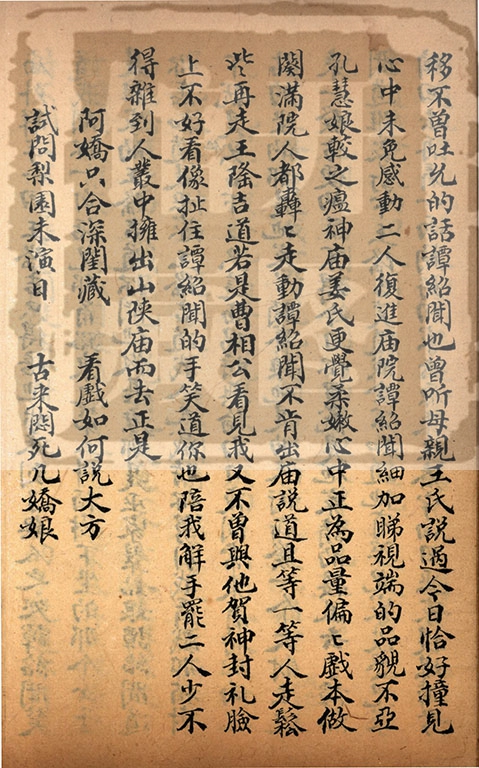 移不曾吐允的話譚紹聞也曾听母親王氏說過今日恰好撞見
心中未免感動二人復進庙院譚紹聞細加睇視端的品貌不亞
孔慧娘較之瘟神庙姜氏更覺柔嫩心中正為品量偏〻戲本做
闋滿院人都轟〻走動譚紹聞不肯出庙說道且等一等人走鬆
些再走王隆吉道若是曹相公看見我又不曾與他賀神封礼臉
上不好看像扯住譚紹聞的手笑道你也陪我解手罷二人少不
得雜到人叢中擁出山陝庙而去正是
阿嬌只合深閨藏 看戲如何說大方
試問梨園未演日 古來閟死几嬌娘